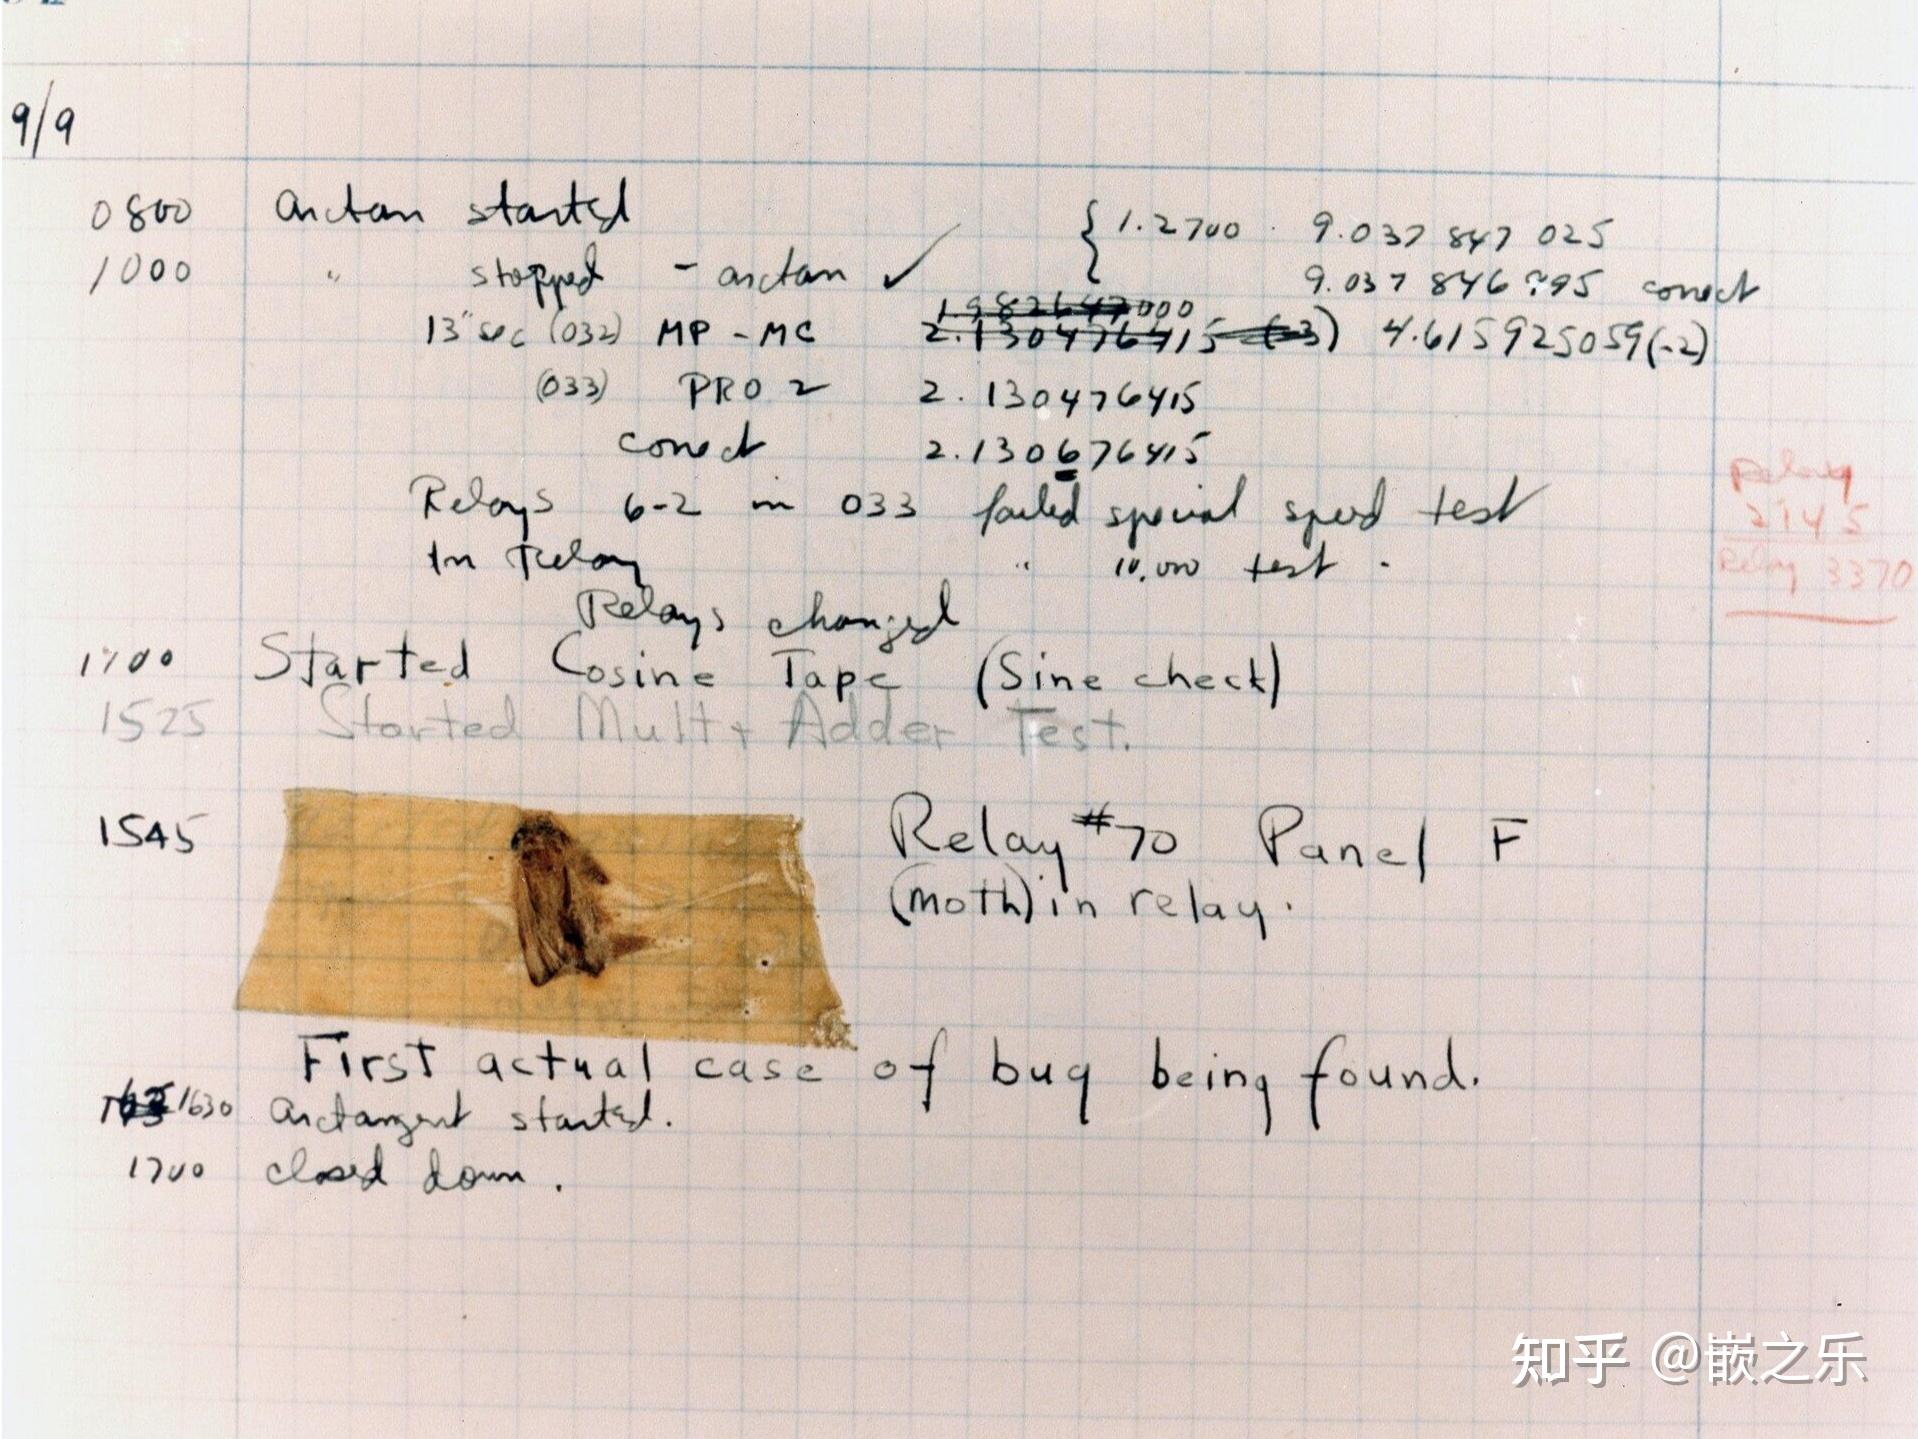 9/9
0800 arctan started { 1.2700 9.037 847 025
1000 " stopped - arctan ✓ 9.037 846 995 correct
13" sec (032) MP - MC 1.982647000 2.130476415 (-3) 4.615925059(-2)
(033) PRO 2 2.130476415
correct 2.130676415
Relays 6-2 in 033 failed special speed test
In Relay " 10,000 test .
Relays changed
Relay
2145
Relay 3370
1700 Started Cosine Tape (Sine check)
1525 Started Mult + Adder Test.
1545 Relay #70 Panel F
(moth) in relay.
First actual case of bug being found.
1630 arctangent started.
1700 closed down.
知乎 @嵌之乐